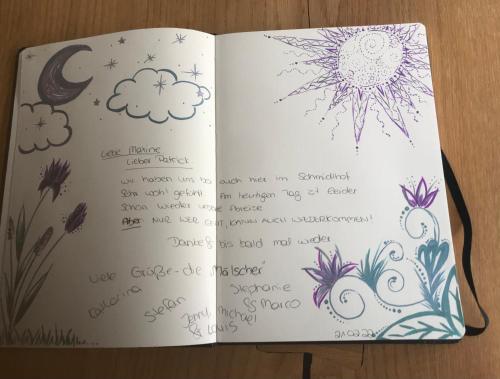 Liebe Marine
Lieber Patrick
wir haben uns bei euch hier im Schmidhof
sehr wohl gefühlt. Am heutigen Tag ist leider
schon wieder unsere Abreise
Aber: NUR WER GEHT, KANN AUCH WIEDERKOMMEN!
Danke & bis bald mal wieder
Viele Grüße - die "Malscher"
Katharina
Stefan
Stephanie
& Marco
Jenny, Michael
& Louis
21.02.22